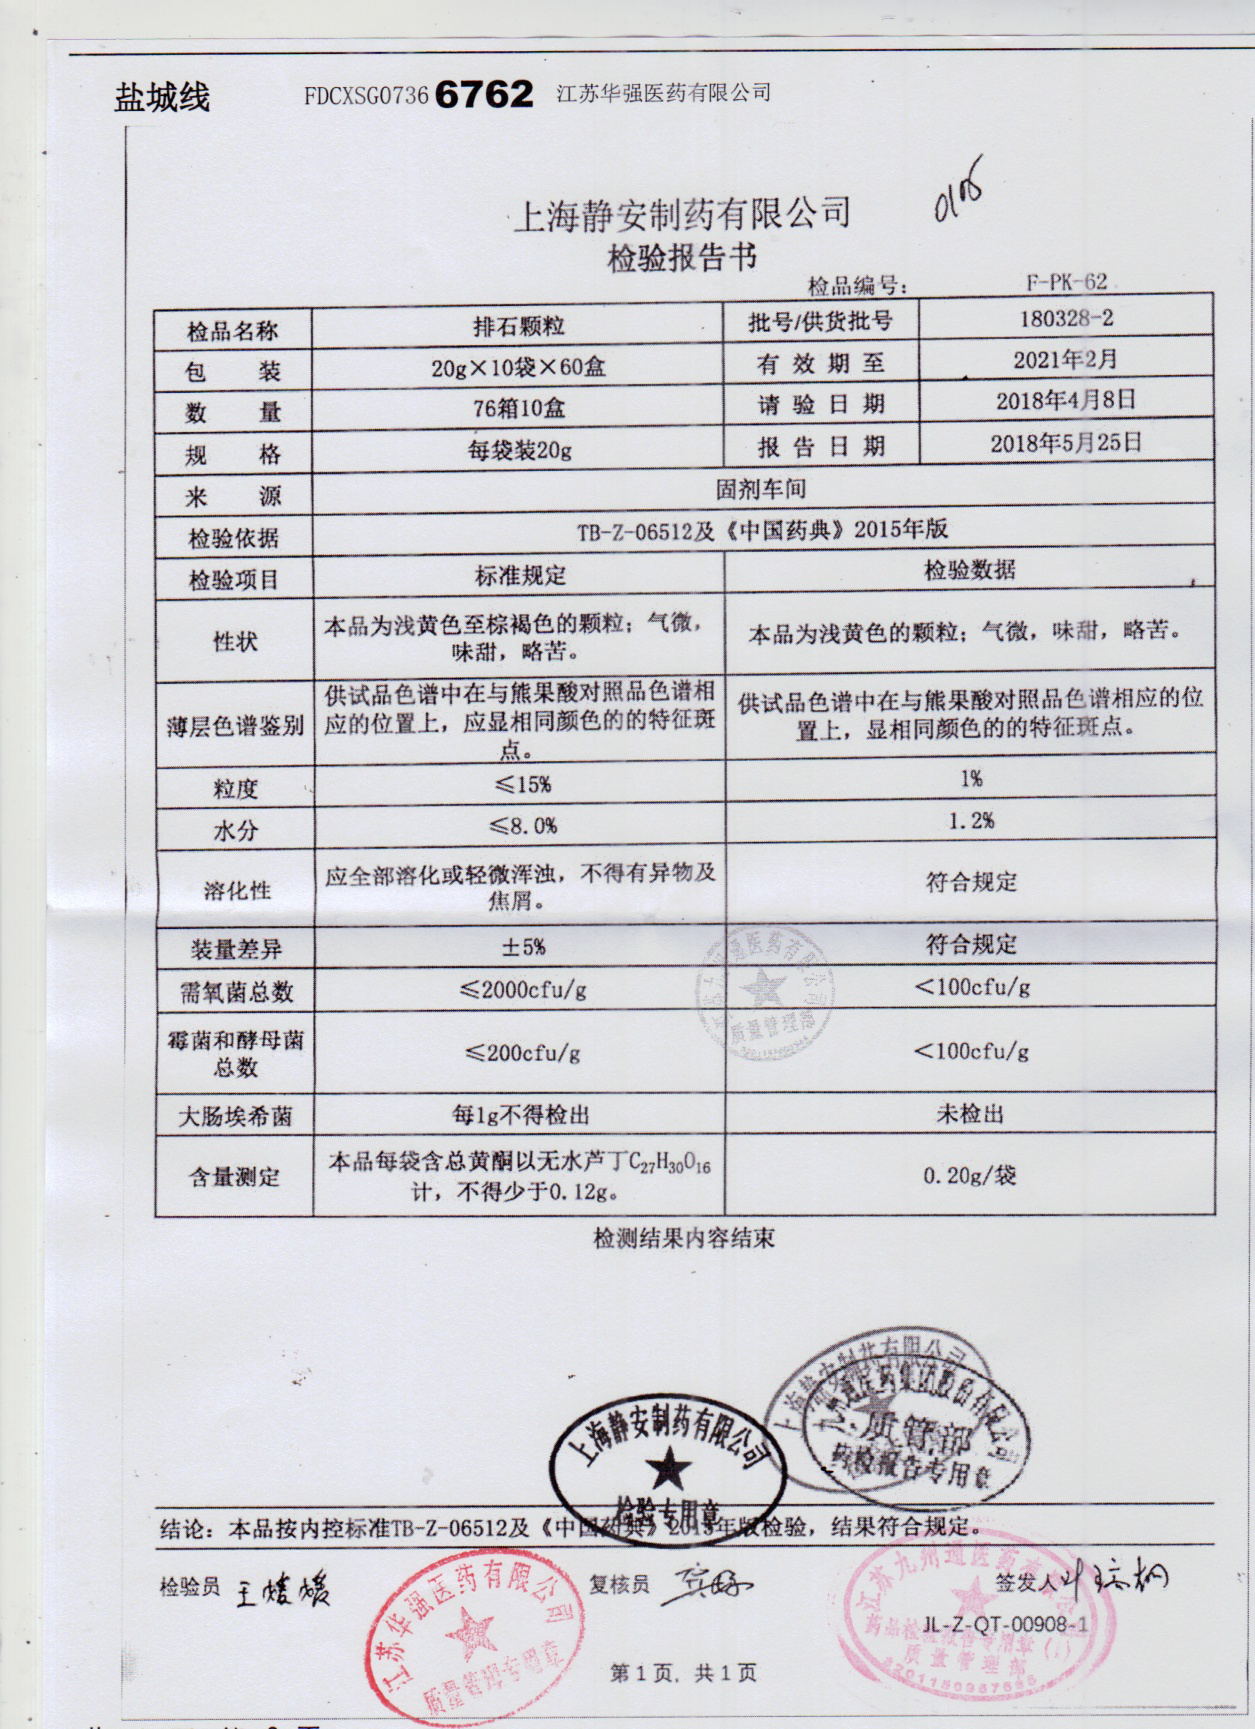 盐城线 FDCXSG0736 6762 江苏华强医药有限公司
0105
上海静安制药有限公司
检验报告书
检品编号: F-PK-62
检品名称 排石颗粒 批号/供货批号 180328-2
包 装 20g×10袋×60盒 有效期至 2021年2月
数 量 76箱10盒 请验日期 2018年4月8日
规 格 每袋装20g 报告日期 2018年5月25日
来 源 固剂车间
检验依据 TB-Z-06512及《中国药典》2015年版
检验项目 标准规定 检验数据
性状 本品为浅黄色至棕褐色的颗粒；气微，味甜，略苦。 本品为浅黄色的颗粒；气微，味甜，略苦。
薄层色谱鉴别 供试品色谱中在与熊果酸对照品色谱相应的位置上，应显相同颜色的的特征斑点。 供试品色谱中在与熊果酸对照品色谱相应的位置上，显相同颜色的的特征斑点。
粒度 ≤15% 1%
水分 ≤8.0% 1.2%
溶化性 应全部溶化或轻微浑浊，不得有异物及焦屑。 符合规定
装量差异 ±5% 符合规定
需氧菌总数 ≤2000cfu/g <100cfu/g
霉菌和酵母菌总数 ≤200cfu/g <100cfu/g
大肠埃希菌 每1g不得检出 未检出
含量测定 本品每袋含总黄酮以无水芦丁C27H30O16计，不得少于0.12g。 0.20g/袋
质量管理部
检测结果内容结束
上海静安制药有限公司
检验专用章
上海静安制药有限公司
九州通医药集团股份有限公司
质管部
药检报告专用章
结论：本品按内控标准TB-Z-06512及《中国药典》2015年版检验，结果符合规定。
检验员 王媛媛 复核员 签发人
JL-Z-QT-00908-1
江苏华强医药有限公司
质量管理专用章
江苏九州通医药有限公司
药品检验报告专用章(1)
质量管理部
第1页, 共1页